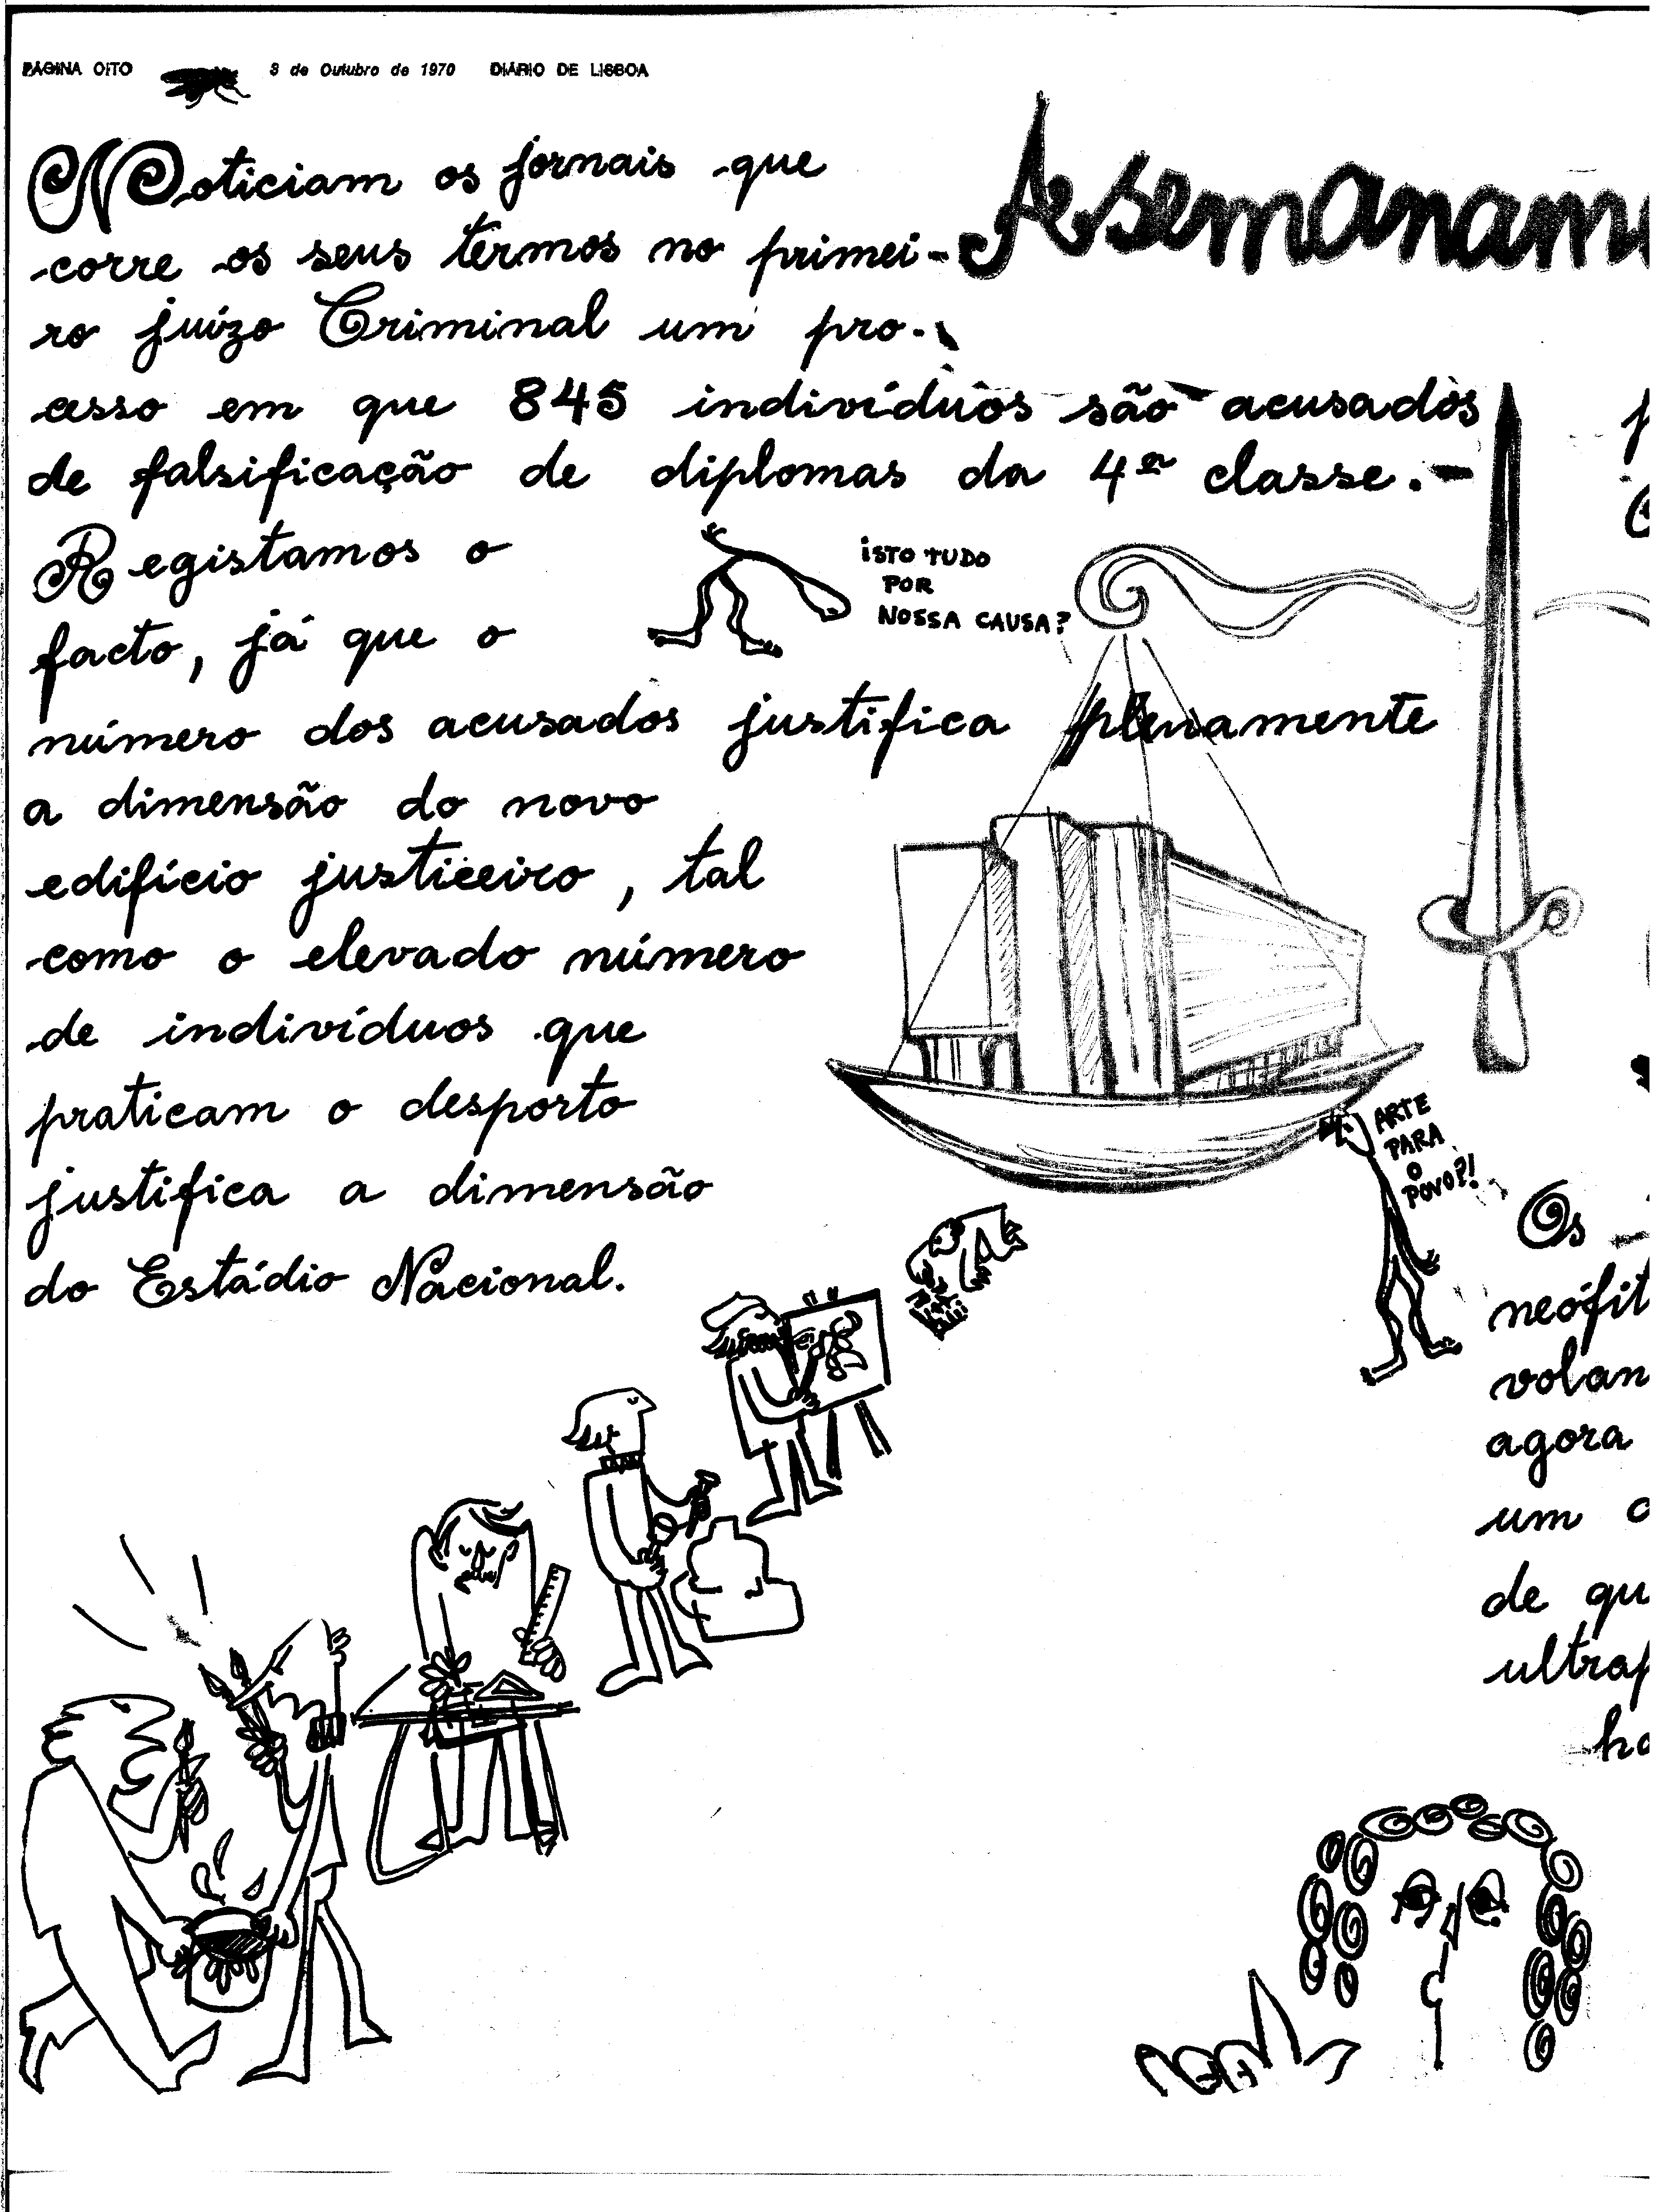 PÁGINA OITO 3 de Outubro de 1970 DIÁRIO DE LISBOA
Noticiam os jornais que
corre os seus termos no primei-
ro juízo Criminal um pro-
cesso em que 845 indivíduos são acusados
de falsificação de diplomas da 4ª classe.-
Registamos o
facto, já que o
número dos acusados justifica plenamente
a dimensão do novo
edifício justiceiro, tal
como o elevado número
de indivíduos que
praticam o desporto
justifica a dimensão
do Estádio Nacional.
ISTO TUDO
POR
NOSSA CAUSA?
ARTE
PARA
O
POVO?!
Os
neófit
volan
agora
um
de qu
ultrap